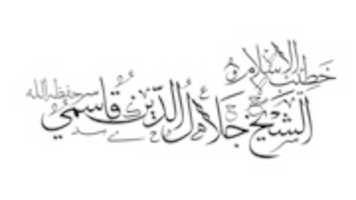 خطيب الإسلام
الشيخ جلال الدين قاسمي حفظه الله